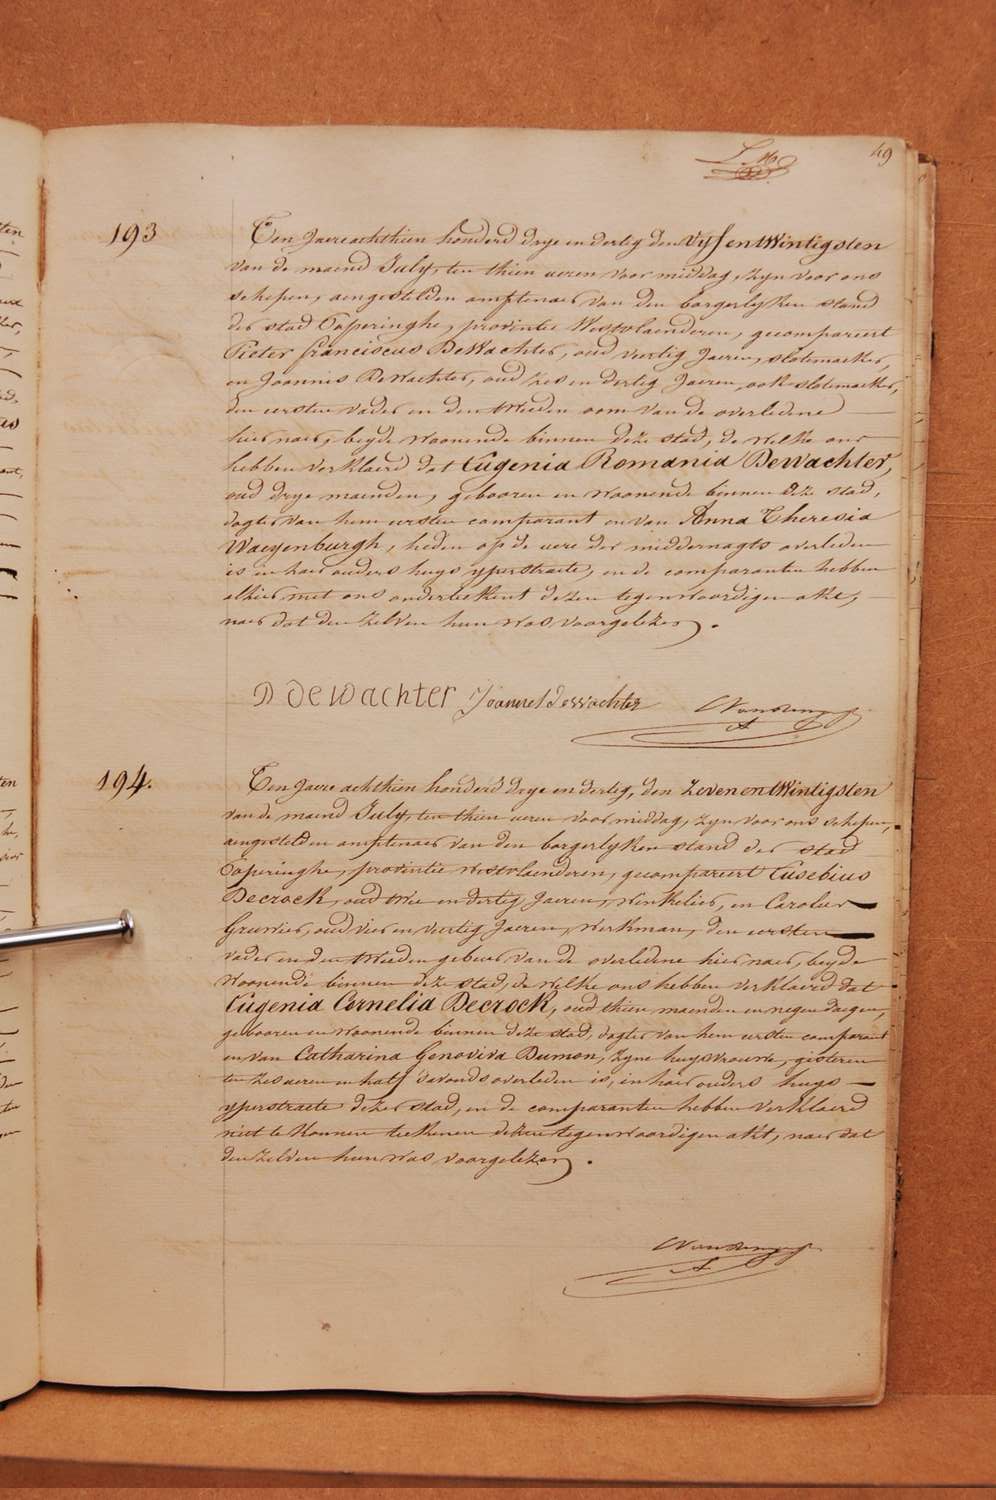 49
193
Ten Jaere achthien honderd drye en dertig den vyf en Twintigsten
van de maend July, ten thien ueren voor middag, zyn voor ons
schepen, aengestelden amptenaer van den borgerlyken stand
der stad Poperinghe, provintie Westvlaenderen, gecompareert
Pieter franciscus DeWachter, oud veertig Jaeren, slotemaeker,
en Joannes DeWachter, oud zes en dertig Jaeren, ook slotemaeker,
den eersten vader en den tweeden oom van de overledene
hier naer, beyde woonende binnen deze stad, de welke ons
hebben verklaerd dat Eugenia Romania DeWachter,
oud drye maenden, gebooren en woonende binnen deze stad,
dogter van hem eersten comparant en van Anna Theresia
Waeyenburgh, heden op de uere der middernagts overleden
is in haer ouders huys yperstraete, en de comparanten hebben
alhier met ons onderteekent dezen tegenwoordigen akt,
naer dat den zelven hun was voorgelezen.
D DeWachter Joannes Dewachter
194.
Ten Jaere achthien honderd drye en dertig, den Zeven en Twintigsten
van de maend July, ten thien ueren voor middag, zyn voor ons schepen,
aengestelden amptenaer van den borgerlyken stand der stad
Poperinghe, provintie westvlaenderen, gecompareert Eusebius
Decrock, oud drie en dertig Jaeren, winkelier, en Carolus
Gruwier, oud vier en veertig Jaeren, werkman, den eersten
vader en den tweeden gebuer van de overledene hier naer, beyde
woonende binnen deze stad, de welke ons hebben verklaerd dat
Eugenia Cornelia Decrock, oud thien maenden en negen dagen,
gebooren en woonende binnen deze stad, dogter van hem eersten comparant
en van Catharina Genoviva Dumon, zyne huysvrouwe, gisteren
ten zes ueren en half s'avonds overleden is, in haer ouders huys
yperstraete dezer stad, en de comparanten hebben verklaerd
niet te konnen teekenen dezen tegenwoordigen akt, naer dat
den zelven hun was voorgelezen.